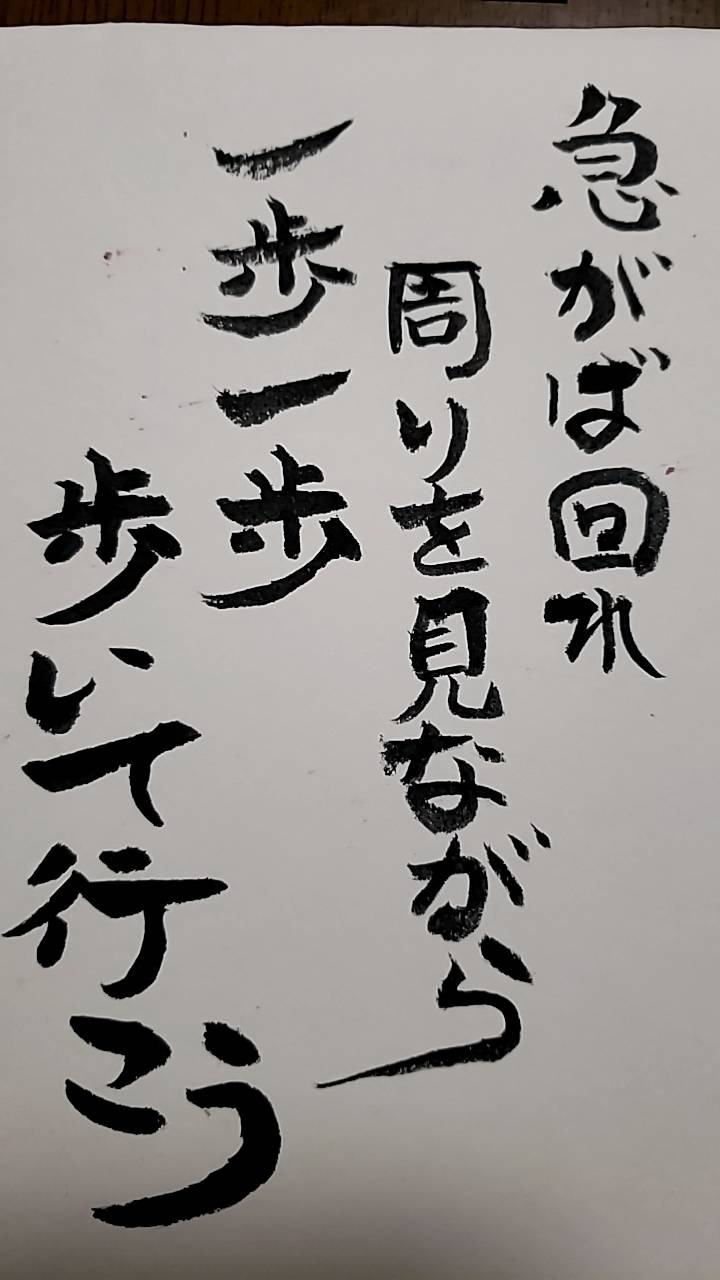 急がば回れ
周りを見ながら
一歩一歩
歩いて行こう